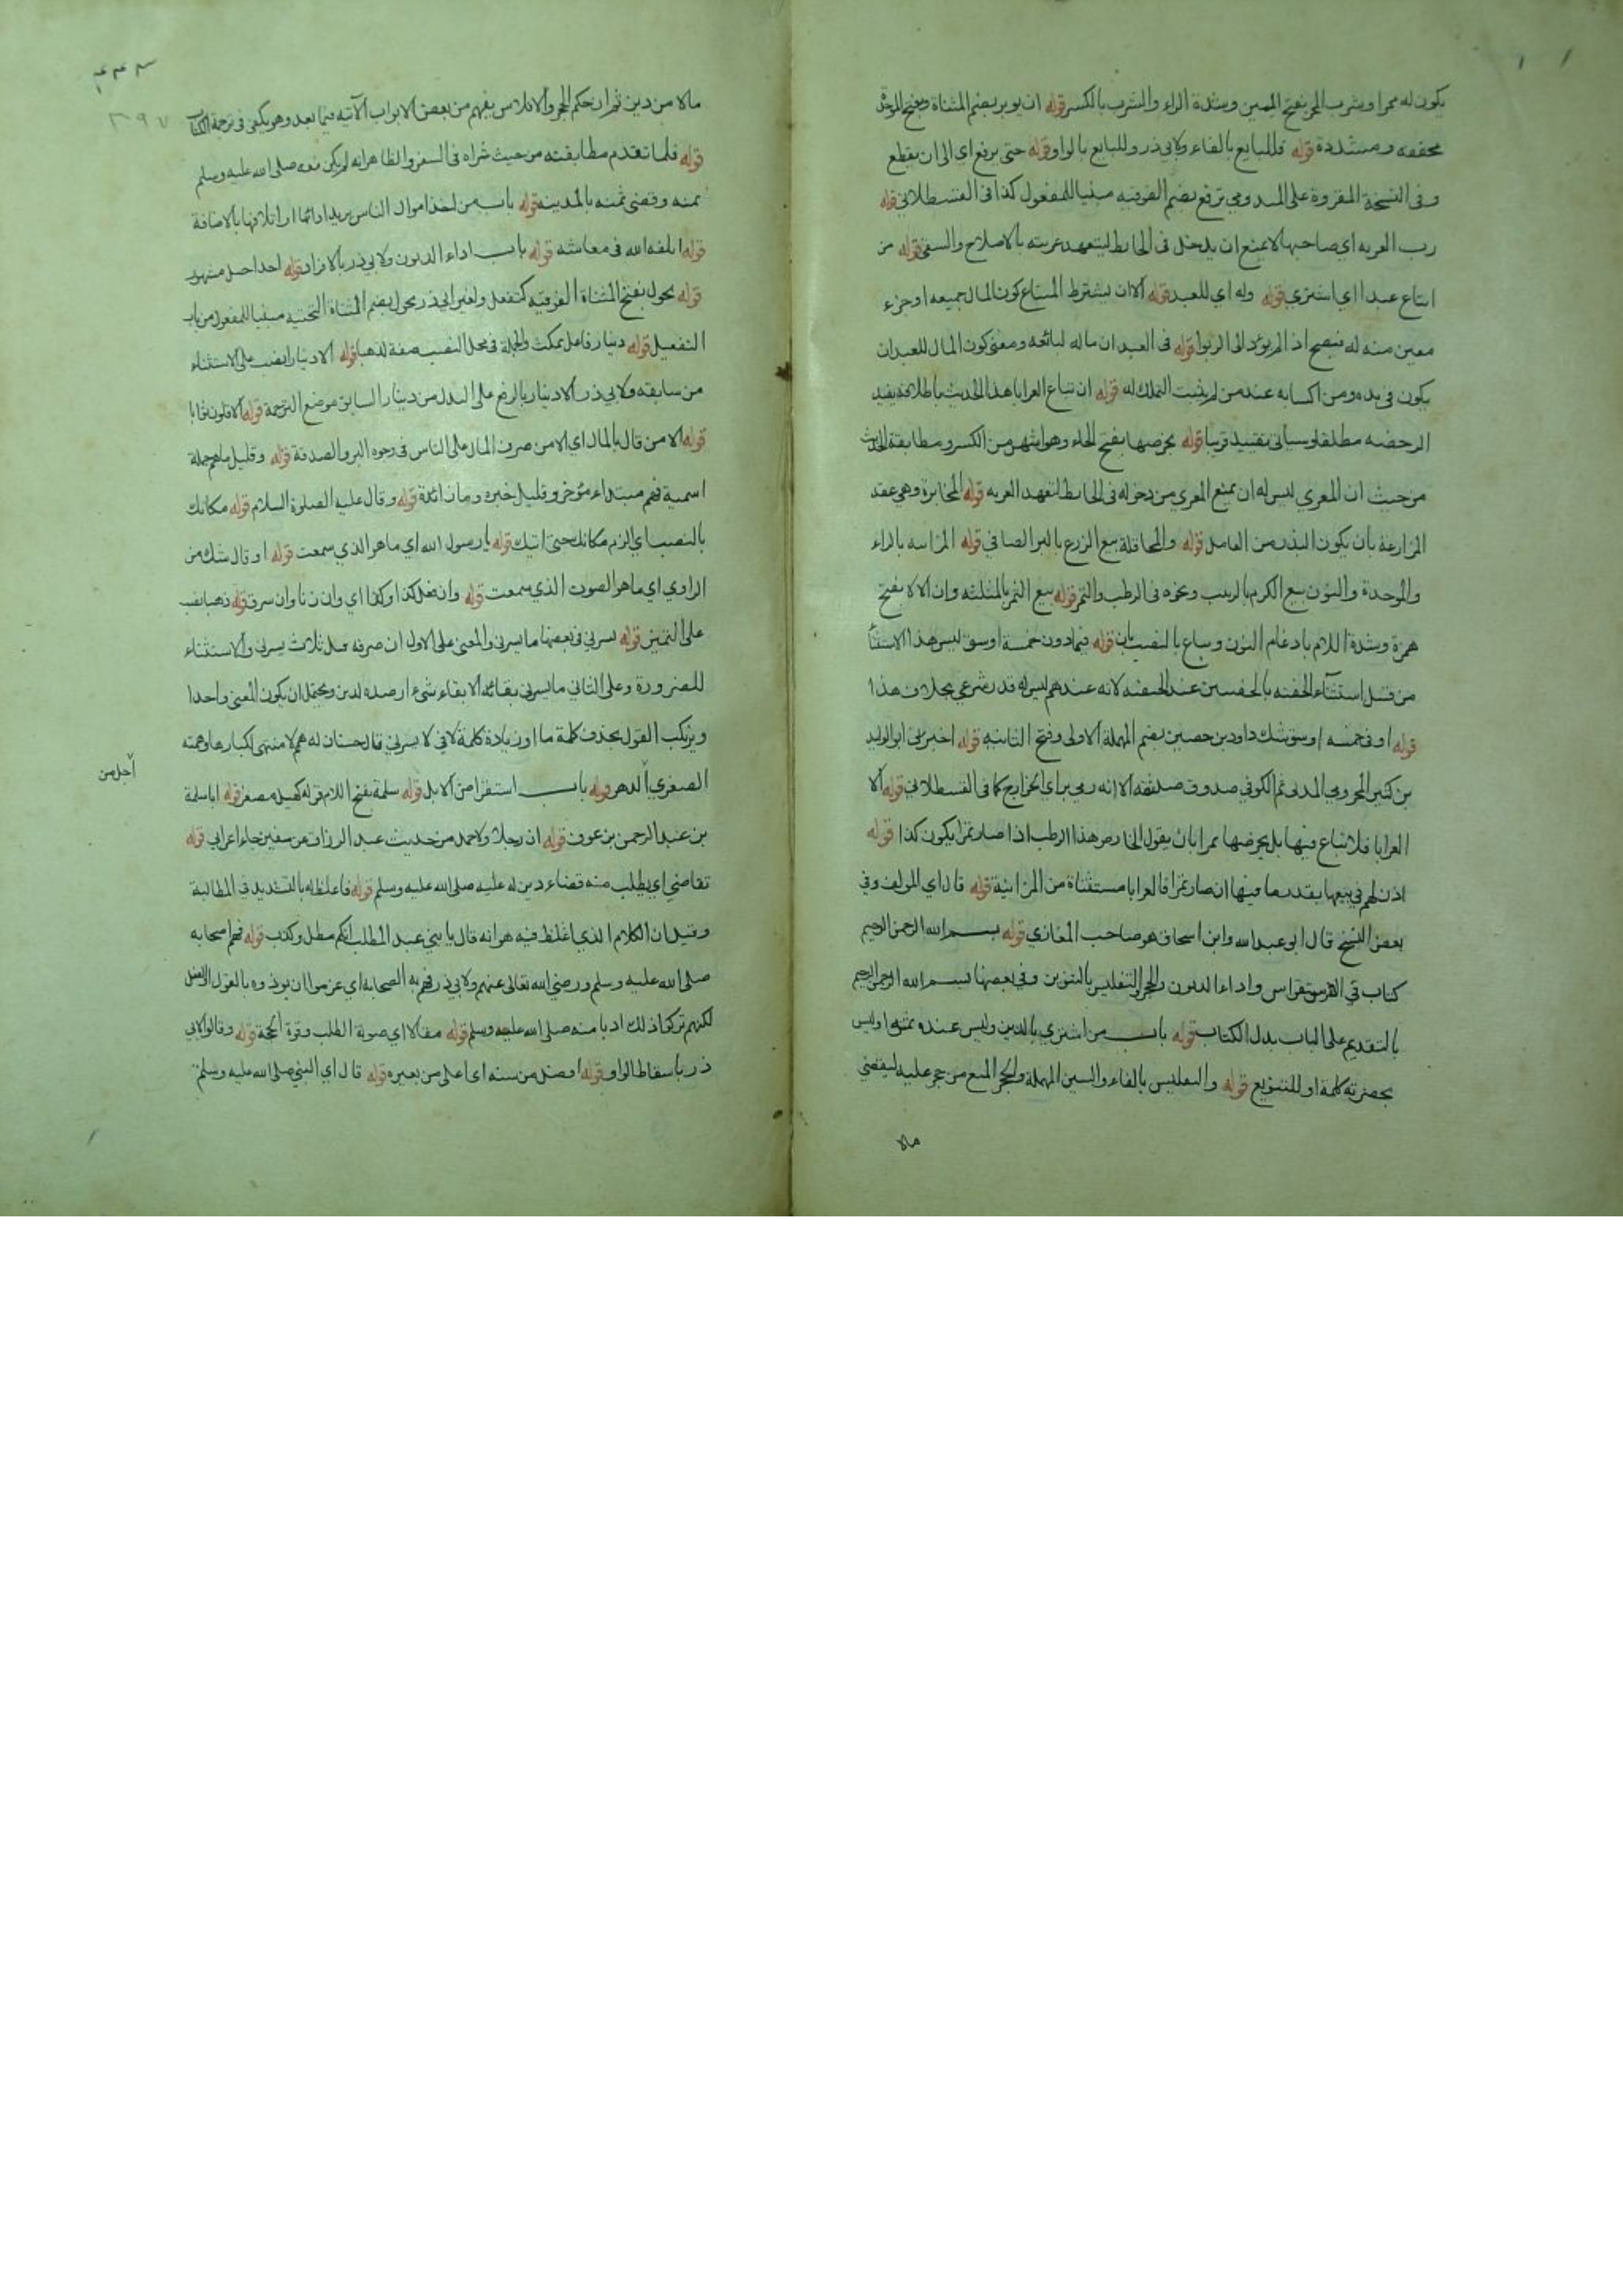 يكون له ممرا وشرب الممر بفتح الميمين وشدة الراء والشرب بالكسر قوله ان يوبر بضم المثناة وفتح الموحدة
مخففه ومشددة قوله فللبايع بالفاء ولابي ذر وللبايع بالواو قوله حتى يرفع اي الى ان يقطع
وفى النسخة المقروة على الميدومي ترفع بضم الفوقيه مبنيا للمفعول كذا فى القسطلاني قوله
رب العريه اي صاحبها لا يمنع ان يدخل فى الحايط ليتعهد عريته بالاصلاح والسقى قوله من
ابتاع عبدا اي اشترى قوله وله اي للعبد قوله الا ان يشترط المبتاع كون المال جميعه او جزء
معين منه له فيصح اذ لم يؤد الى الربوا قوله فى العبد ان ماله لبائعه ومعنى كون المال للعبد ان
يكون فى يده ومن اكسابه عند من لم يثبت التملك له قوله ان تباع العرايا هذا الحديث باطلاقه يفيد
الرخصه مطلقا وسياتى تقييده قريبا قوله بخرصها بفتح الخاء وهو اشهر من الكسر ومطابقة الحديث
من حيث ان المعري ليس له ان يمنع المعري من دخوله فى الحايط لتعهد العريه قوله المخابرة وهي عقد
المزارعة بان يكون البذر من العامل قوله والمحاقلة بيع الزرع بالبر الصافي قوله المزابنه بالزاء
والموحدة والنون بيع الكرم بالزبيب ونحوه فى الرطب والتمر قوله بيع الثمر بالمثلثه وان لا لا بفتح
همزة وشدة اللام بادغام النون وتباع بالنصب بان قوله فيما دون خمسة اوسق ليس هذا الاستثنا
من قبيل استثناء الحفنه بالحفنتين عند الحنفيه لانه عندهم ليس له قدر شرعي بخلاف هذا
قوله او فى خمسه اوسق شك داود بن حصين بضم المهملة الاولى وفتح الثانيه قوله اخبرنى ابو الوليد
بن كثير المخزومي المدنى ثم الكوفي صدوق ثقه الا انه رمي براي الخوارج كما فى القسطلاني قوله الا
العرايا فلا تباع فيها بل يخرصها تمرا بان يقول الخارص هذا الرطب اذا صار تمرا يكون كذا قوله
اذن لهم في بيعها بقدر ما فيها ان صار تمرا فالعرايا مستثناة من المزابنة قوله قال اي المولف وفي
بعض النسخ قال ابو عبد الله وابن اسحاق هو صاحب المغازي قوله بسم الله الرحمن الرحيم
كتاب في الاستقراض واداء الديون والحجر والتفليس بالتنوين وفي بعضها بسم الله الرحمن الرحيم
بالتقديم على الباب بدل الكتاب قوله باب من اشترى بالدين وليس عنده ثمنه او ليس
بحضرته كلمة او للتنويع قوله والتفليس بالفاء والسين المهملة والحجر المنع من حجر عليه ليقضي
مالا
٤٤٣
مالا من دين ثم ان حكم الحجر والافلاس يفهم من بعض الابواب الآتيه فيما بعد وهو يكفى فى ترجمة الكتاب
قوله فلما تقدم مطابقته من حيث شراه فى السفر والظاهر انه لم يكن معه صلى الله عليه وسلم
ثمنه وقضى ثمنه بالمدينه قوله باب من اخذ اموال الناس يريد اداءها او اتلافها بالاضافة
قوله اتلفه الله فى معاشه قوله باب اداء الديون ولابي ذر بالافراد قوله احدا جبل مشهور
قوله تحول بفتح المثناة الفوقيه كتفعل ولغير ابي ذر يحول بضم المثناة التحتيه مبنيا للمفعول من باب
التفعيل قوله دينار فاعل يمكث والجملة فى محل النصب صفة لذهبا قوله الا دينارا نصب على الاستثناء
من سابقه ولابي ذر الا دينار بالرفع على البدل من دينار السابق موضع الترجمة قوله الاقلون ثوابا
قوله الا من قال بالمال اي الا من صرف المال على الناس فى وجوه البر والصدقة قوله وقليل ما هم جملة
اسمية فهم مبتداء مؤخر وقليل خبره وما زائدة قوله وقال عليه الصلوة السلام قوله مكانك
بالنصب اي الزم مكانك حتى اتيك قوله يا رسول الله اي ما هو الذي سمعت قوله او قال شك من
الراوي اي ما هو الصوت الذي سمعت قوله وان فعل كذا وكذا اي وان زنا وان سرق قوله ذهبا نصب
على التمييز قوله يسرني فى بعضها ما يسرنى والمعنى على الاول ان صرفه قبل ثلاث يسرنى والاستثناء
للضرورة وعلى الثاني ما يسرني بقائه الا بقاء شيء ارصده لدين ويحتمل ان يكون المعنى واحدا
ويرتكب القول بحذف كلمة ما او زيادة كلمة لا في لا يسرني قال حسان له همم لا منتهى لكبارها وهمته
الصغرى الدهر قوله باب استقراض الابل قوله سلمة بفتح اللام قوله كهيل مصغر قوله ابا سلمة
اجل من
بن عبد الرحمن بن عوف قوله ان رجلا ولاحمد من حديث عبد الرزاق عن سفين جاء اعرابي قوله
تقاضى اي يطلب منه قضاء دين له عليه صلى الله عليه وسلم قوله فاغلظ له بالتشديد فى المطالبة
وقيل ان الكلام الذي اغلظ فيه هو انه قال يا بني عبد المطلب انكم مطل وكذب قوله فهم اصحابه
صلى الله عليه وسلم ورضى الله تعالى عنهم ولابي ذر فهم به الصحابة اي عزموا ان يوذوه بالقول او الفعل
لكنهم تركوا ذلك ادبا منه صلى الله عليه وسلم قوله مقالا اي صولة الطلب وقوة الحجة قوله وقالوا لابي
ذر باسقاط الواو قوله افضل من سنه اي اعلى من بعيره قوله قال اي النبي صلى الله عليه وسلم